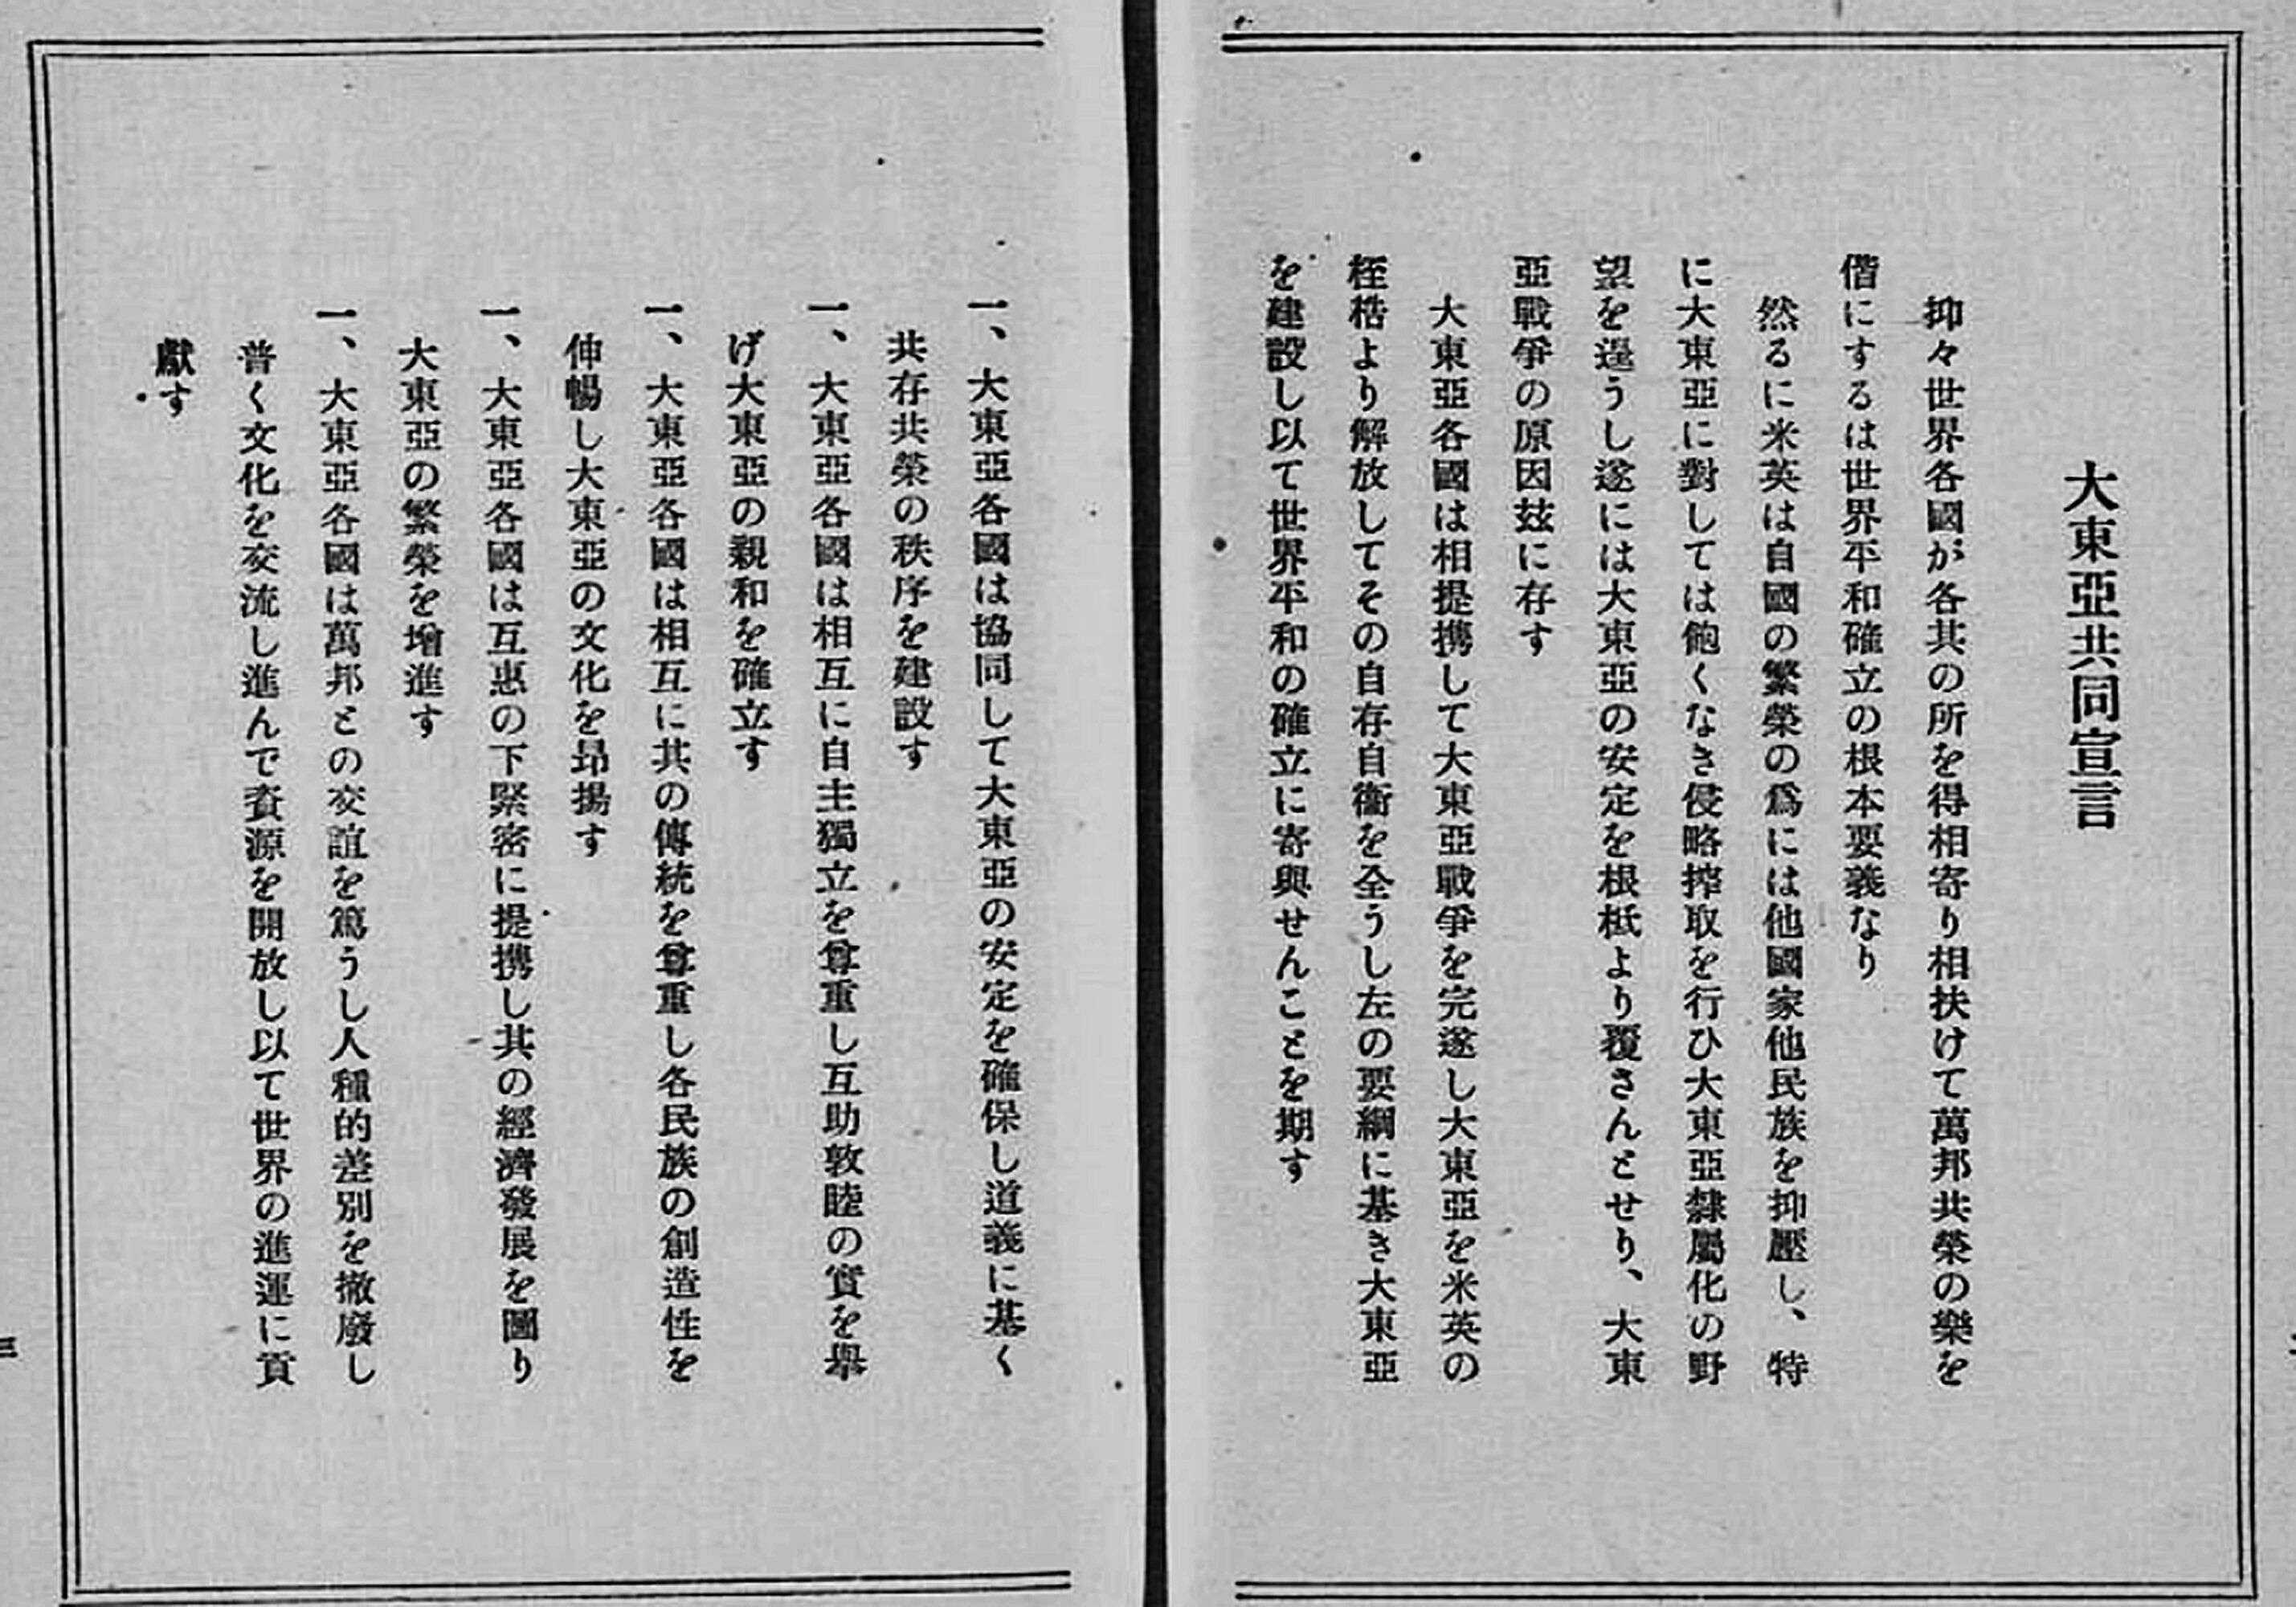 大東亞共同宣言
抑々世界各國が各其の所を得相寄り相扶けて萬邦共榮の樂を
偕にするは世界平和確立の根本要義なり
然るに米英は自國の繁榮の爲には他國家他民族を抑壓し、特
に大東亞に對しては飽くなき侵略搾取を行ひ大東亞隸屬化の野
望を逞うし遂には大東亞の安定を根柢より覆さんとせり、大東
亞戰爭の原因玆に存す
大東亞各國は相提携して大東亞戰爭を完遂し大東亞を米英の
桎梏より解放してその自存自衞を全うし左の要綱に基き大東亞
を建設し以て世界平和の確立に寄與せんことを期す
一、大東亞各國は協同して大東亞の安定を確保し道義に基く
共存共榮の秩序を建設す
一、大東亞各國は相互に自主獨立を尊重し互助敦睦の實を擧
げ大東亞の親和を確立す
一、大東亞各國は相互に其の傳統を尊重し各民族の創造性を
伸暢し大東亞の文化を昂揚す
一、大東亞各國は互惠の下緊密に提携し其の經濟發展を圖り
大東亞の繁榮を增進す
一、大東亞各國は萬邦との交誼を篤うし人種的差別を撤廢し
普く文化を交流し進んで資源を開放し以て世界の進運に貢
獻す
三